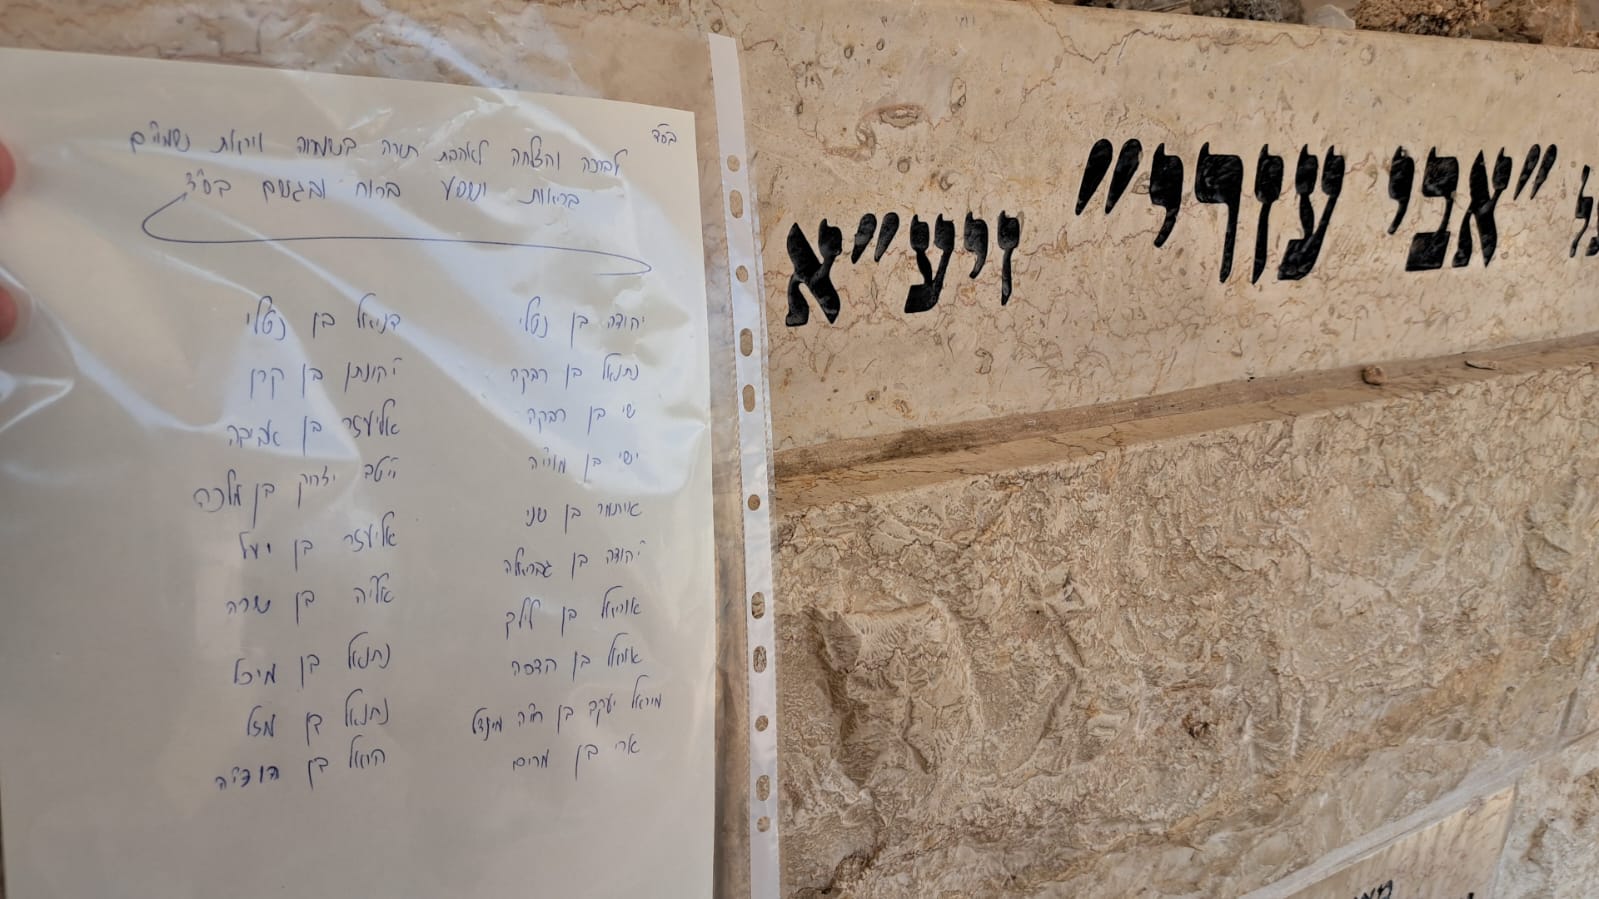 בסד
לברכה והצלחה לאהבת תורה בטהרה ויראת שמיים
בריאות ושפע ברוח ובגשם בס"ד
יהודה בן נטלי
נתנאל בן רבקה
שי בן רבקה
ישי בן מוריה
איתמר בן שני
יהודה בן גבריאלה
אוריאל בן לילך
אוראל בן הדסה
יעקב בן חיה מינדל
ארי בן מרים
דניאל בן נטלי
יהונתן בן קרן
אליעזר בן אביבה
בן מלכה
אליעזר בן יעל
אליה בן שרה
נתנאל בן מיכל
נתנאל בן מזל
הראל בן הודיה
"אבי עזרי" זיע"א